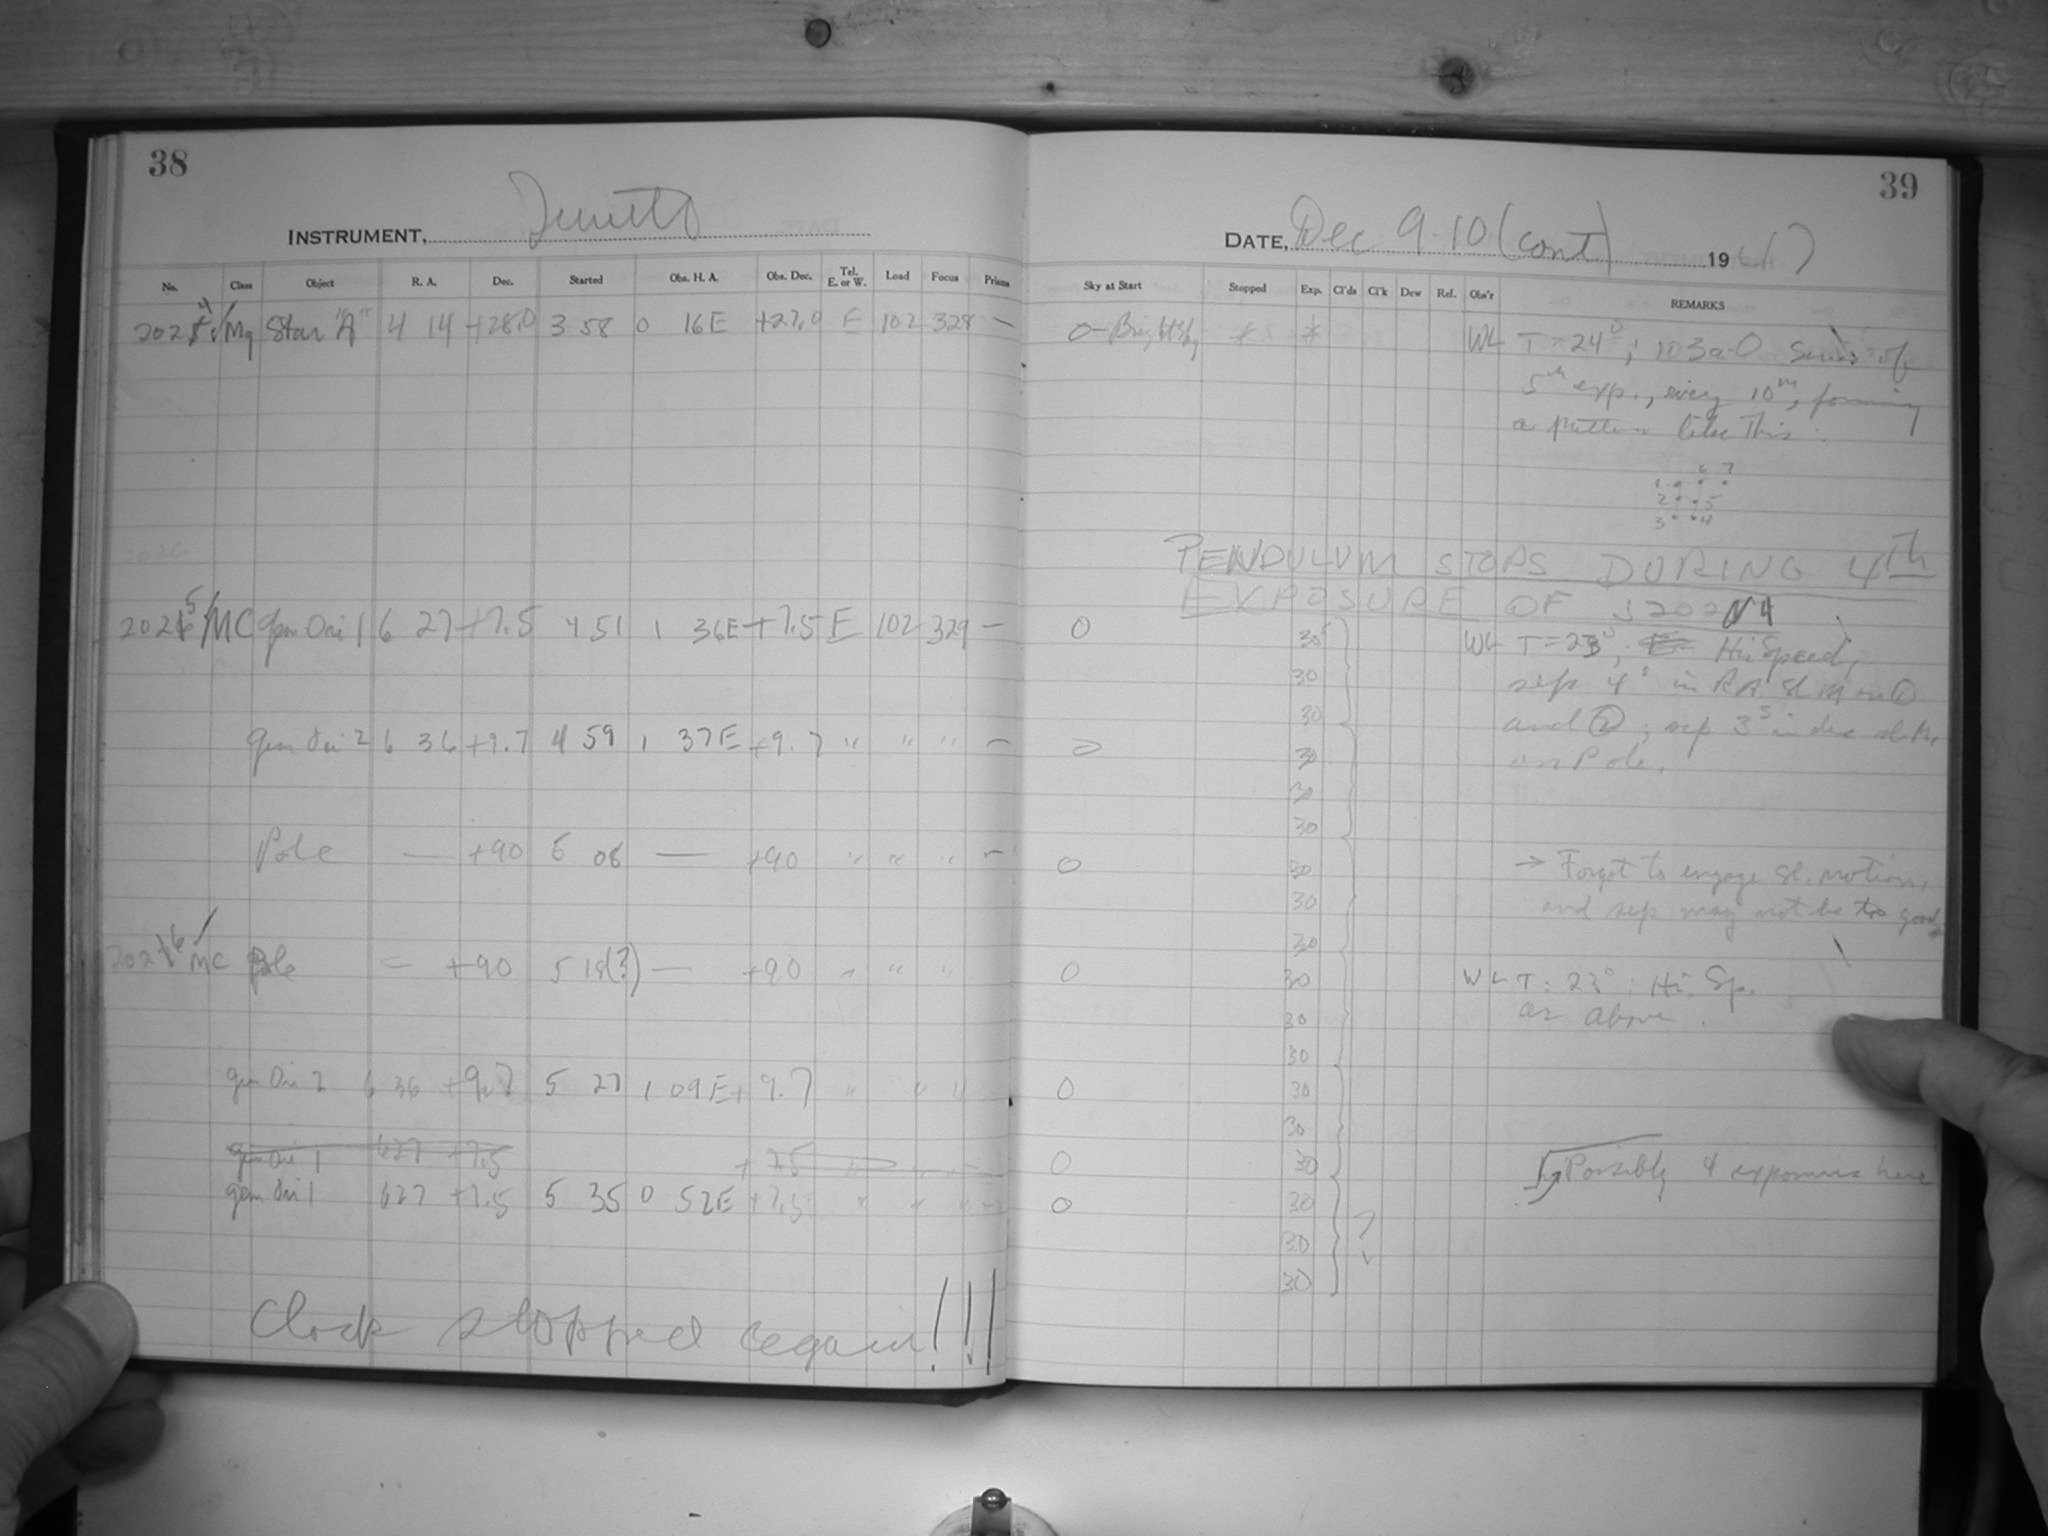 38
INSTRUMENT, Jewett
No. Class Object R. A. Dec. Started Obs. H. A. Obs. Dec. Tel. E. or W. Load Focus Prisms
2024 Mq Star "A" 4 14 +28.0 3 58 0 16E +27.0 E 102 328 —
2026
2025 MC Gem Ori 1 6 27 +7.5 4 51 1 36E +7.5 E 102 329 —
Gem Ori 2 6 36 +9.7 4 59 1 37E +9.7 " " " —
Pole — +90 5 08 — +90 " " " —
2026 MC Pole — +90 5 18(?) — +90 " " "
Gem Ori 2 6 36 +9.7 5 27 1 09E +9.7 " " "
Gem Ori 1 627 +7.5 +7.5
Gem Ori 1 627 +7.5 5 35 0 52E +7.5 " " " —
Clock stopped again!!!
39
DATE, Dec 9-10 (cont) 1947
Sky at Start Stopped Exp. Cl'ds Cl'k Dew Ref. Obs'r REMARKS
0-Bright sky * * WL T = 24°; 103a-O Series of
5m exp., every 10m, forming
a pattern like this:
6 7
1
2 5
3 4
PENDULUM STOPS DURING 4th
EXPOSURE OF J2024
0 30 WL T = 23°; Hi Speed,
30 sep 4s in RA sl m on ①
30 and ②; sep 3s in dec sl. m.
0 30 on Pole.
30
30
0 30 → Forgot to engage sl. motion,
30 and sep may not be too good
30
0 30 WL T: 23°: Hi. Sp.
30 as above.
30
0 30
30
0 30 Possibly 4 exposures here
0 30
30 ?
30